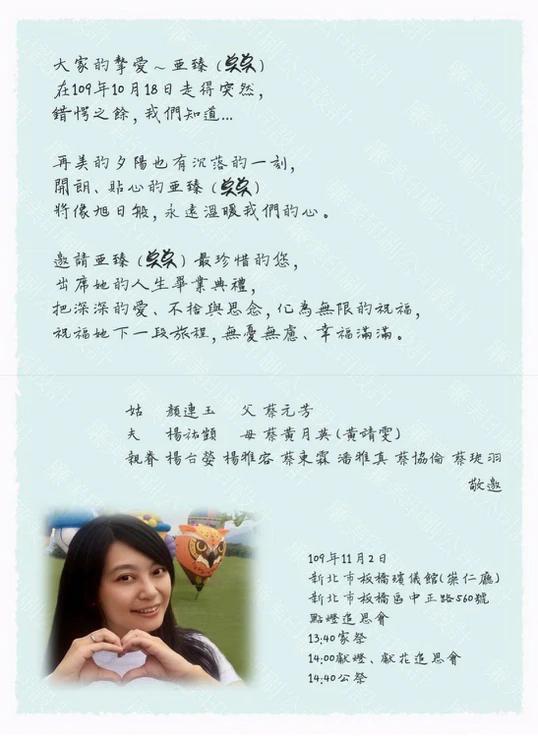 大家的摯愛～亞臻(臭臭)
在109年10月18日走得突然,
錯愕之餘,我們知道...
再美的夕陽也有沉落的一刻,
開朗、貼心的亞臻(臭臭)
將像旭日般,永遠溫暖我們的心。
邀請亞臻(臭臭)最珍惜的您,
出席她的人生畢業典禮,
把深深的愛、不捨與思念,化為無限的祝福,
祝福她下一段旅程,無憂無慮、幸福滿滿。
姑 顏連玉 父 蔡元芳
夫 楊祐顗 母 蔡黃月英(黃靖雯)
親眷 楊台瑩 楊雅容 蔡東霖 潘雅真 蔡協倫 蔡琰羽
敬邀
109年11月2日
新北市板橋殯儀館(崇仁廳)
新北市板橋區中正路560號
點燈追思會
13:40家祭
14:00獻燈、獻花追思會
14:40公祭